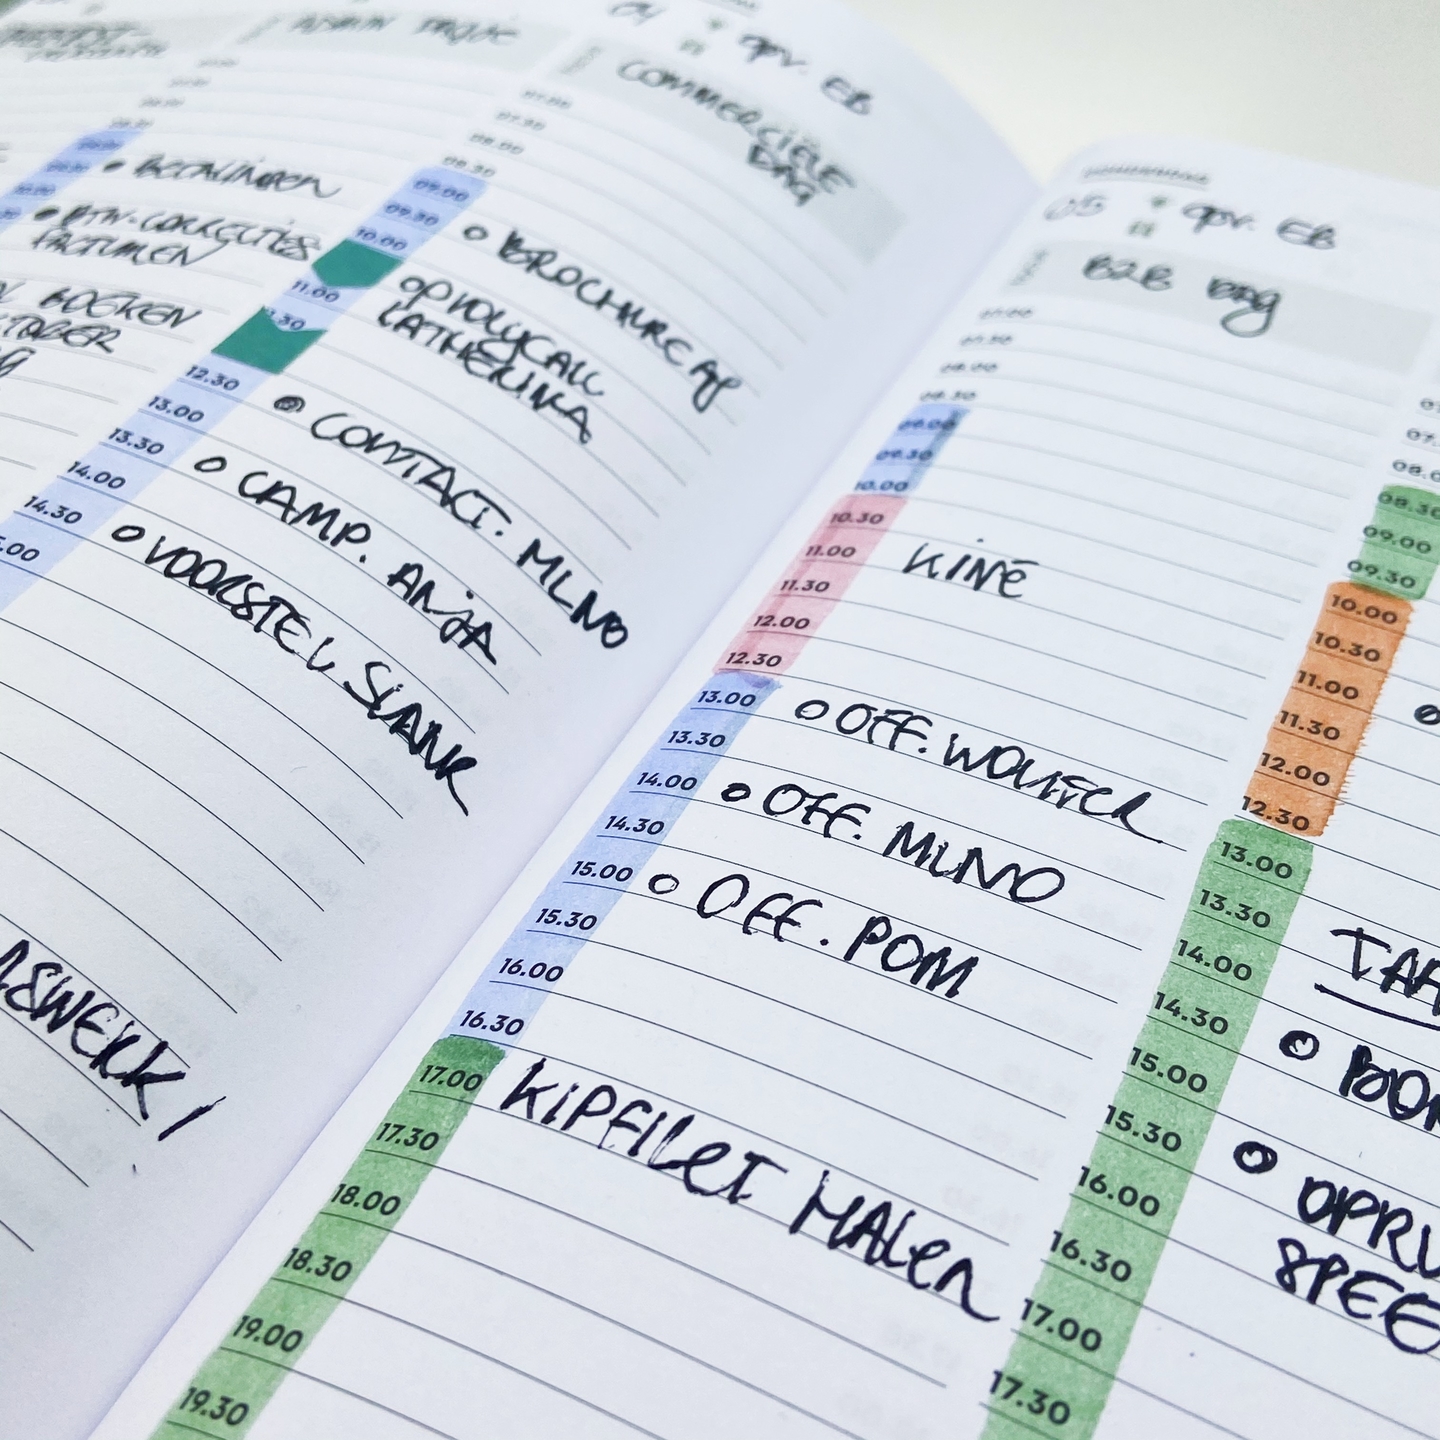 ADMIN
BETALINGEN
BTW-CORRECTIES
FACTUREN
BOEKEN
09.00
09.30
10.00
11.00
12.30
13.00
13.30
14.00
14.30
04
opv. EB
COMMERCIËLE
DAG
07.00
07.30
08.00
08.30
BROCHURE AP
OPVOLGCALL
CATHERINA
CONTACT. MLMO
CAMP. ANJA
VOORSTEL SLANK
05
opv. EB
B2B DAG
07.00
07.30
08.00
08.30
09.00
09.30
10.00
10.30
11.00 KINE
11.30
12.00
12.30
13.00 OFF. WOUTER
13.30
14.00 OFF. MLMO
14.30
15.00 OFF. POM
15.30
16.00
16.30
17.00 KIPFILET HALEN
17.30
18.00
18.30
19.00
19.30
08.30
09.00
09.30
10.00
10.30
11.00
11.30
12.00
12.30
13.00
13.30
14.00
14.30
15.00
15.30
16.00
16.30
17.00
17.30